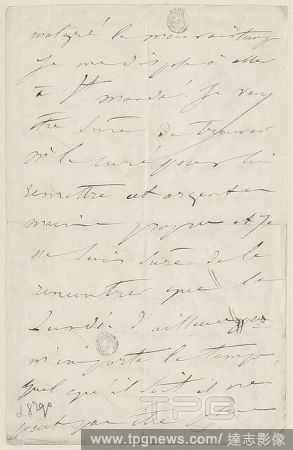 malgré le mauvais temps
je me dispose à aller
à St mandé. Je veux
être sûre de trouver
mr le curé pour lui
remettre cet argent en
main propre et je
ne suis sûre de le
rencontrer que le
Lundi. d'ailleurs
m'importe le temps
quel qu'il soit il ne
peut pas être
TPG
www.tpgnews.com / 達志影像